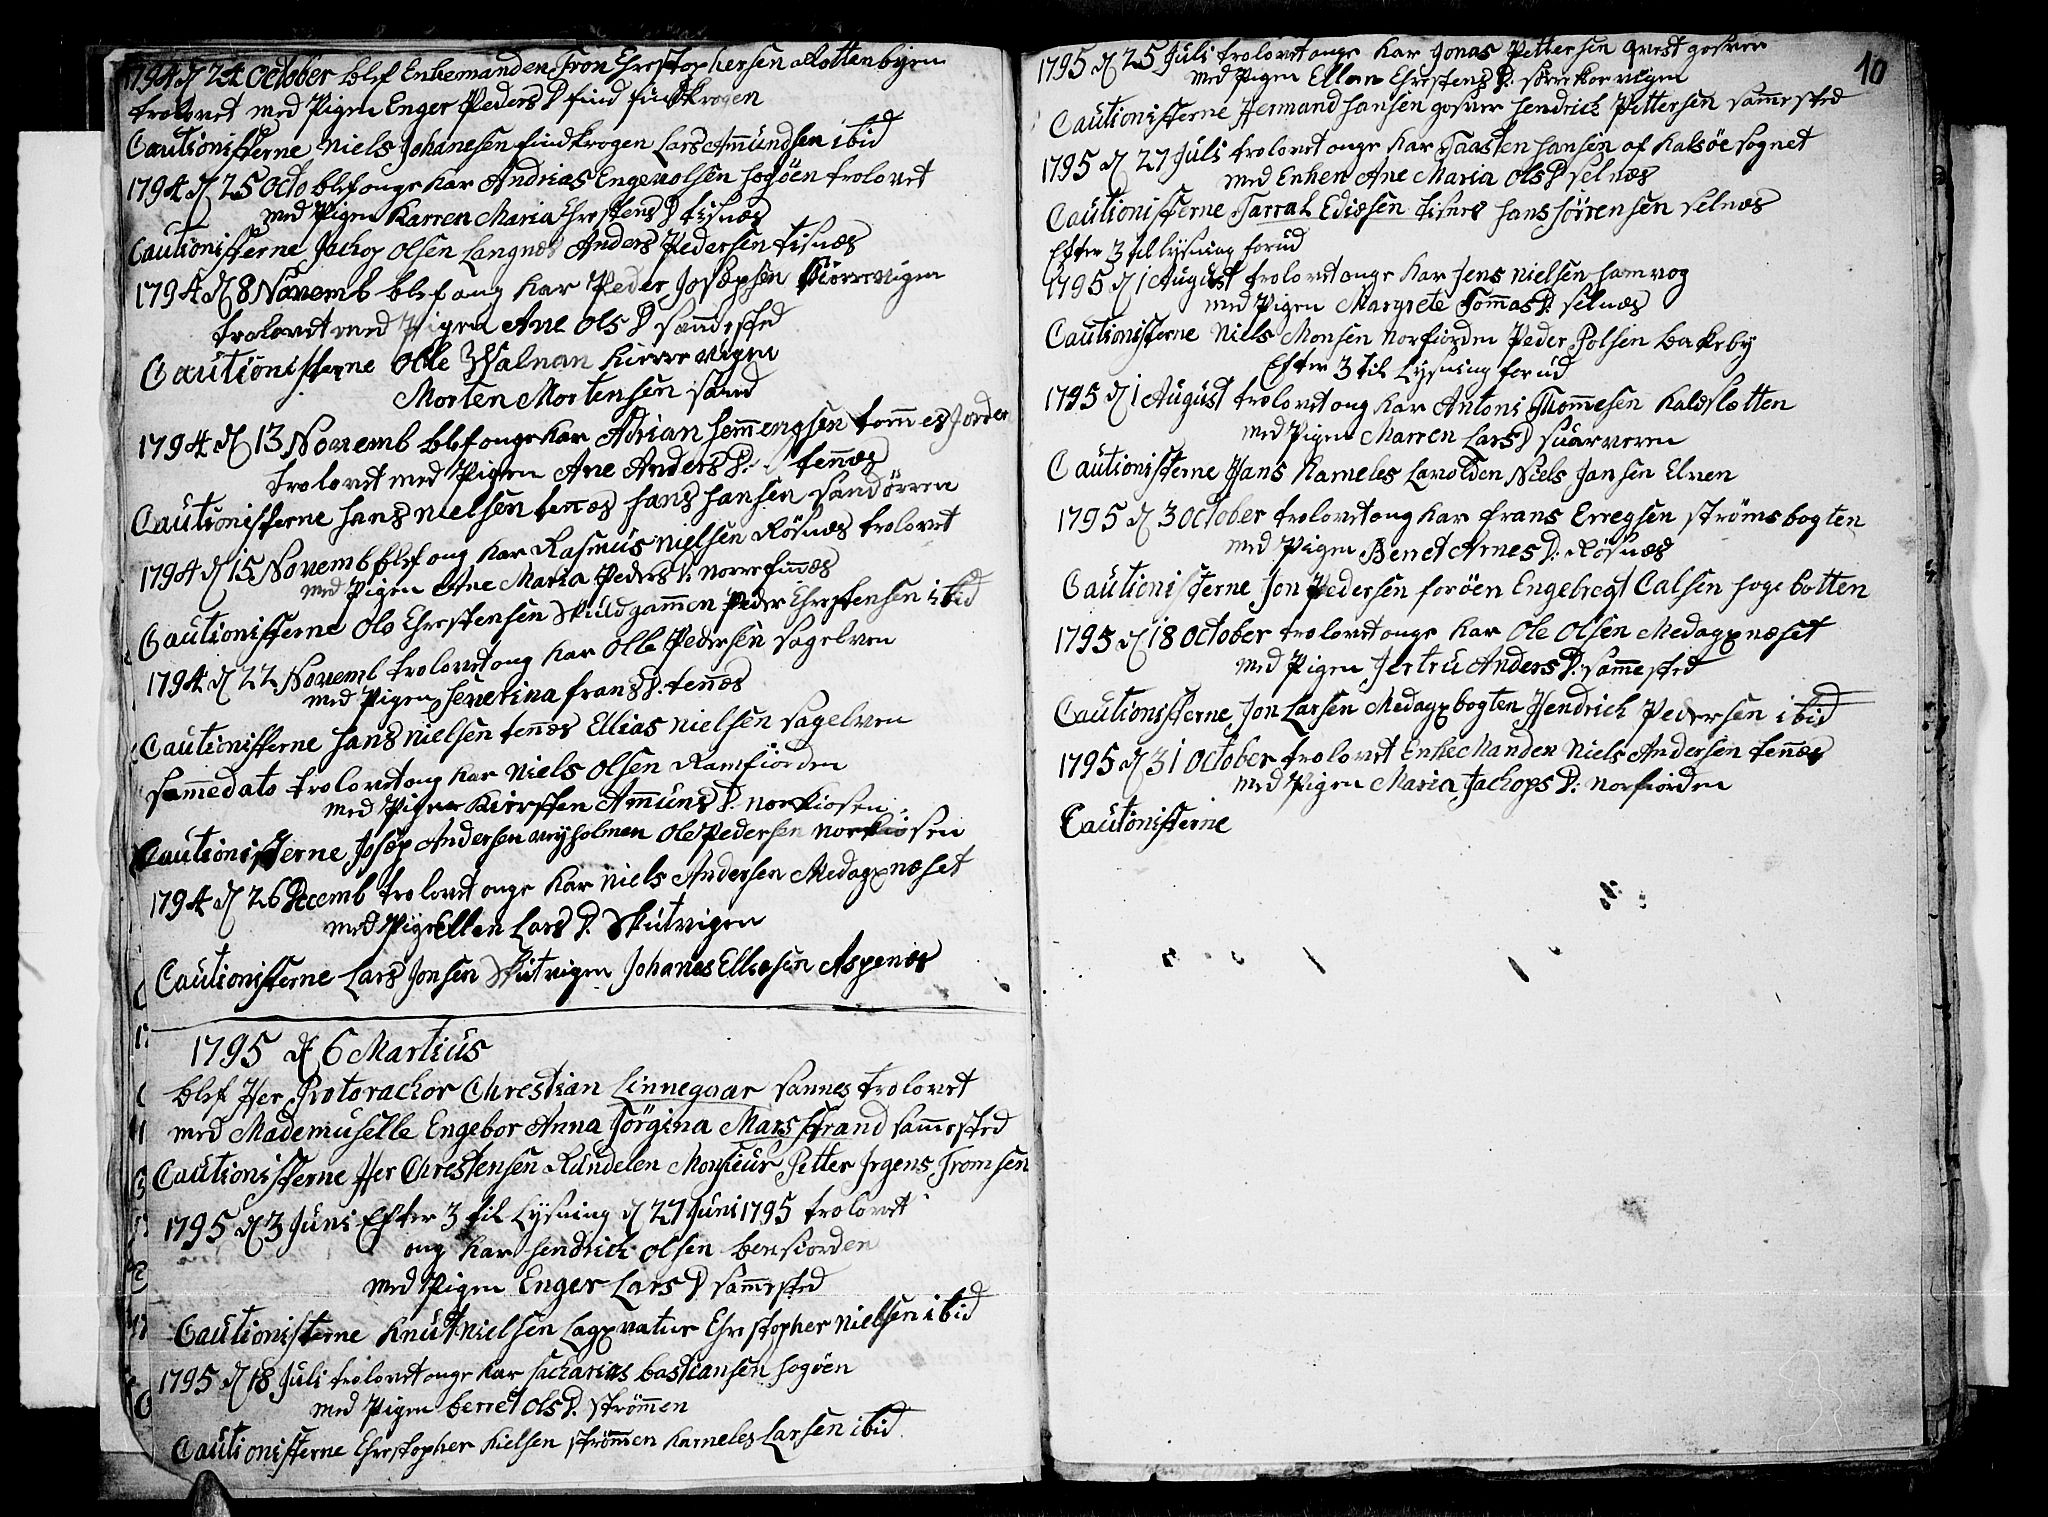 1794 d 24 October blef Enkemanden Tron Chrestophersen Rottenbyen
trolovet med Pigen Enger Peders D find findkrogen
Cautionisterne Niels Johanesen findkrogen Lars Amundsen ibid
1794 d 25 Octo blef onge kar Andrias Engevolsen hogöen trolovet
med Pigen Karren Maria Chrestens D tisnæs
Cautionisterne Jachop Olsen Langnæs Anders Pedersen tisnæs
1794 d 8 Novemb blef ong kar Peder Josephsen Kiörrevigen
trolovet med Pigen Ane Ols D sammested
Cautionisterne Olle Walnan kierrevigen
Morten Mortensen samd
1794 d 13 Novemb blef onge kar Adrian hemmengsen tommesJorden
trolovet med Pigen Ane Anders D: tennæs
Cautionisterne hans Nielsen tennæs hans hansen sandörren
1794 d 15 Novemb blef ong kar Rasmus Nielsen Rösnæs trolovet
med Pigen Ane Maria Peders D: norrefinnæs
Cautionisterne Ole Chrestensen Skuldgammen Peder Chrestensen ibid
1794 d 22 Novemb trolovet ong kar Olle Pedersen sagelven
med Pigen Severina frans D: tennæs
Cautionisterne hans Nielsen tennæs Ellias Nielsen sagelven
samme dato trolovet ong kar Niels Olsen Ramfiorden
med Pigen Kiersten Amuns D: norkiosen
Cautionisterne Josep Andersen nyholmen Ole Pedersen norkiosen
1794 d 26 Decemb trolovet onge kar Niels Andersen Medagxnæset
med Pigen Ellen Lars D. Skutvigen
Cautionisterne Lars Jonsen Skutvigen Johanes Ellesen Aspenæs
1795 d 6 Martius
blef Her Protorachor Chrestian Linnegaar sannes trolovet
med Mademuselle Engebor Anna Jörgina Marsstrand sammested
Cautionisterne Her Chrestensen Rundelen Monsieur Petter Irgens Tromsen
1795 d 3 Juni Efter 3 til Lysning d 27 Juni 1795 trolovet
ong kar hendrich olsen bensiorden
med Pigen Enger Lars D sammested
Cautionisterne Knut Nielsen Lagxvatur Chrestopher Nielsen ibid
1795 d 18 Juli trolovet onge kar sacharias bastiansen hogöen
med Pigen berret Ols D. strömmen
Cautionisterne Chrestopher Kielsen strömmen karneles Larsen ibid
10
1795 d 25 Juli trolovet onge kar Jonas Pettersen qvest gosver
med Pigen Ellen Chrestens D: sörrekorvigen
Cautionisterne Hermand hansen gosver hendrick Pettersen sammested
1795 d 27 Juli trolovet onge kar Taasten hansen af Kalsöe sognet
med Enken Ane Maria Ols D selnæs
Cautionisterne Tarral Ediesen tisnes hans sörrensen selnæs
Efter 3 til lysning forud
1795 d 1 August trolovet onge kar Jens Nielsen hamvog
med Pigen Margrete Tommas D: selnæs
Cautionisterne Niels Monsen Norfiorden Peder Polsen bakeby
Efter 3 til Lysning forud
1795 d 1 August trolovet ong kar Antoni Thommesen Kaldslotten
med Pigen Marren Lars D suarveren
Cautionisterne Hans Karneles Lavolden Niels Jansen Elven
1795 d 3 October trolovet ong kar frans Erregsen strömsbogten
med Pigen Beret Arnes D: Rösnæs
Cautionisterne Jon Pedersen foröen Engebregt Calsen hoge botten
1795 d 18 October trolovet onge kar Ole Olsen Medagxnæset
med Pigen Jertru Anders D: sammested
Cautionisterne Jon Larsen Medagxbogten Hendrich Pedersen ibid
1795 d 31 October trolovet Enkemanden Niels Andersen tennæs
med Pigen Maria Jachops D: Norfiorden
Cautionisterne